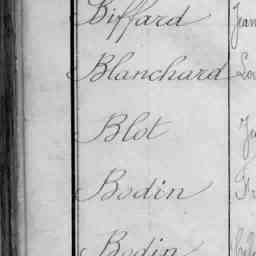 Biffard Jean
Blanchard Lou
Blot
Bodin
Bodin